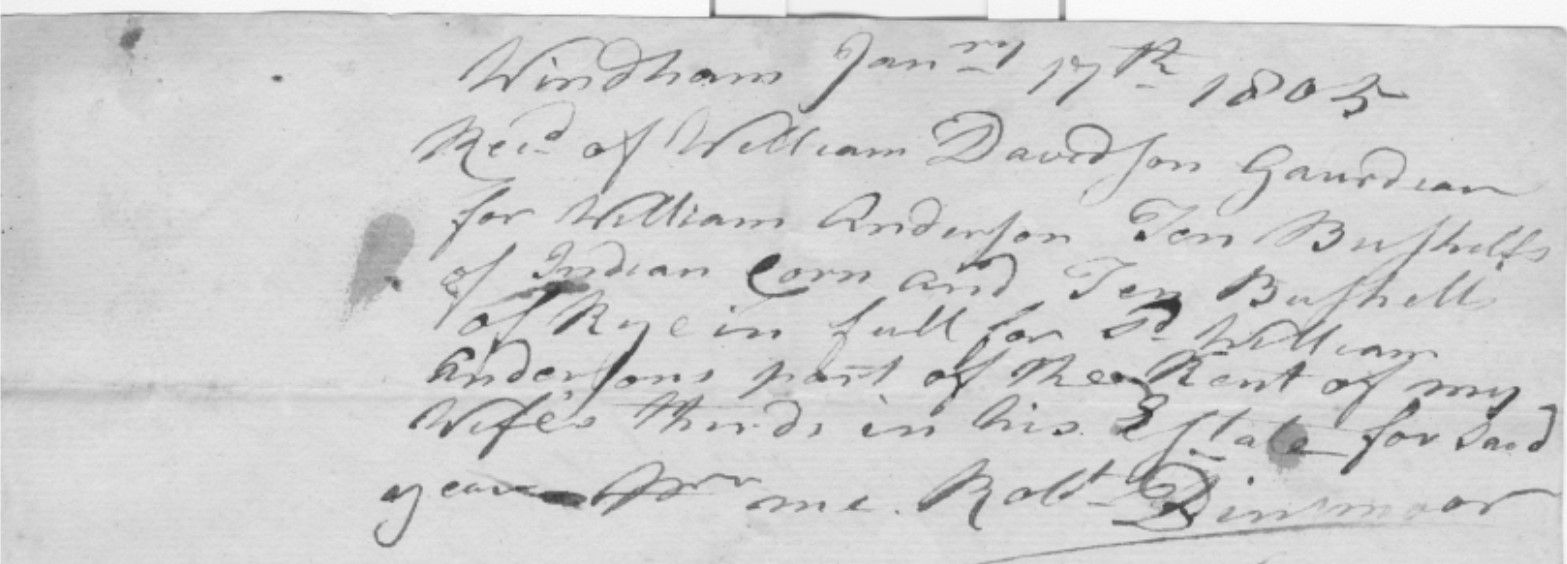 Windham Janry 17th 1805
Recd of William Davidson Gaurdian
for William Anderson Ten Bushells
of Indian Corn and Ten Bushells
of Rye in full for Sd William
Andersons part of the Rent of my
Wife's thirds in his Estate for Said
year pr me. Robt Dinsmoor